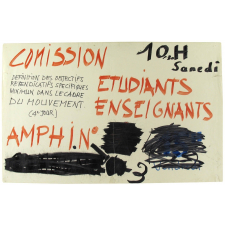 COMISSION
10H
Samedi
DEFINITION DES OBJECTIFS
REVENDICATIFS SPECIFIQUES
MINIMUN DANS LE CADRE
DU MOUVEMENT
(4e JOUR)
ETUDIANTS
ENSEIGNANTS
AMPHI N°
3